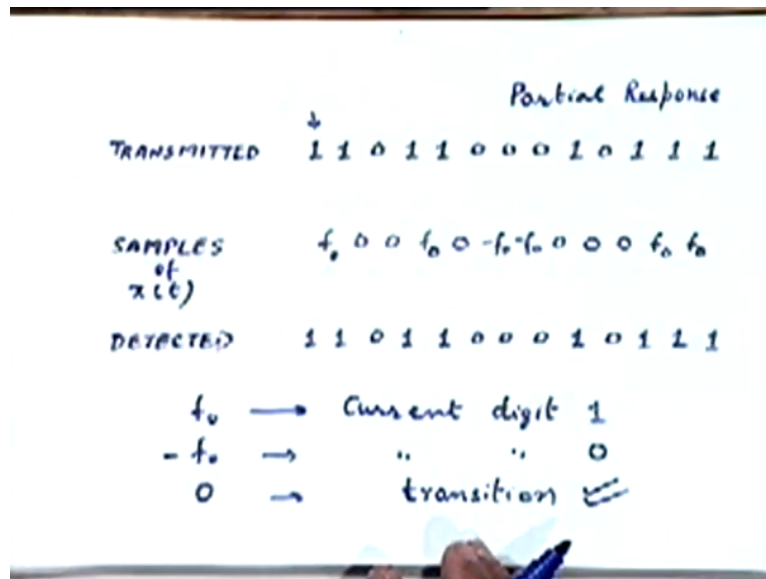 Partial Response
↓
TRANSMITTED 1 1 0 1 1 0 0 0 1 0 1 1 1
SAMPLES f₀ 0 0 f₀ 0 -f₀ -f₀ 0 0 0 f₀ f₀
of
x(t)
DETECTED 1 1 0 1 1 0 0 0 1 0 1 1 1
f₀ → Current digit 1
- f₀ → " " 0
0 → transition